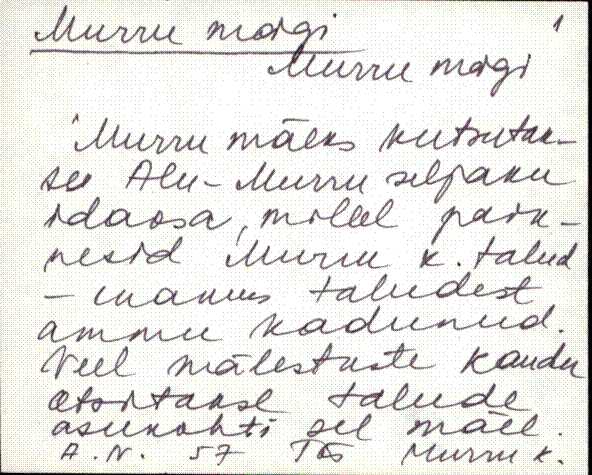 Murru mägi 1
Murru mägi
Murru mäeks kutsutak-
se Alu-Murru seljaku
idaosa, millel paik-
nesid Murru k. talud
– enamus taludest
ammu kadunud.
Veel mälestuste kaudu
otsitakse talude
asukohti sel mäel.
A. N. 57 Murru k.